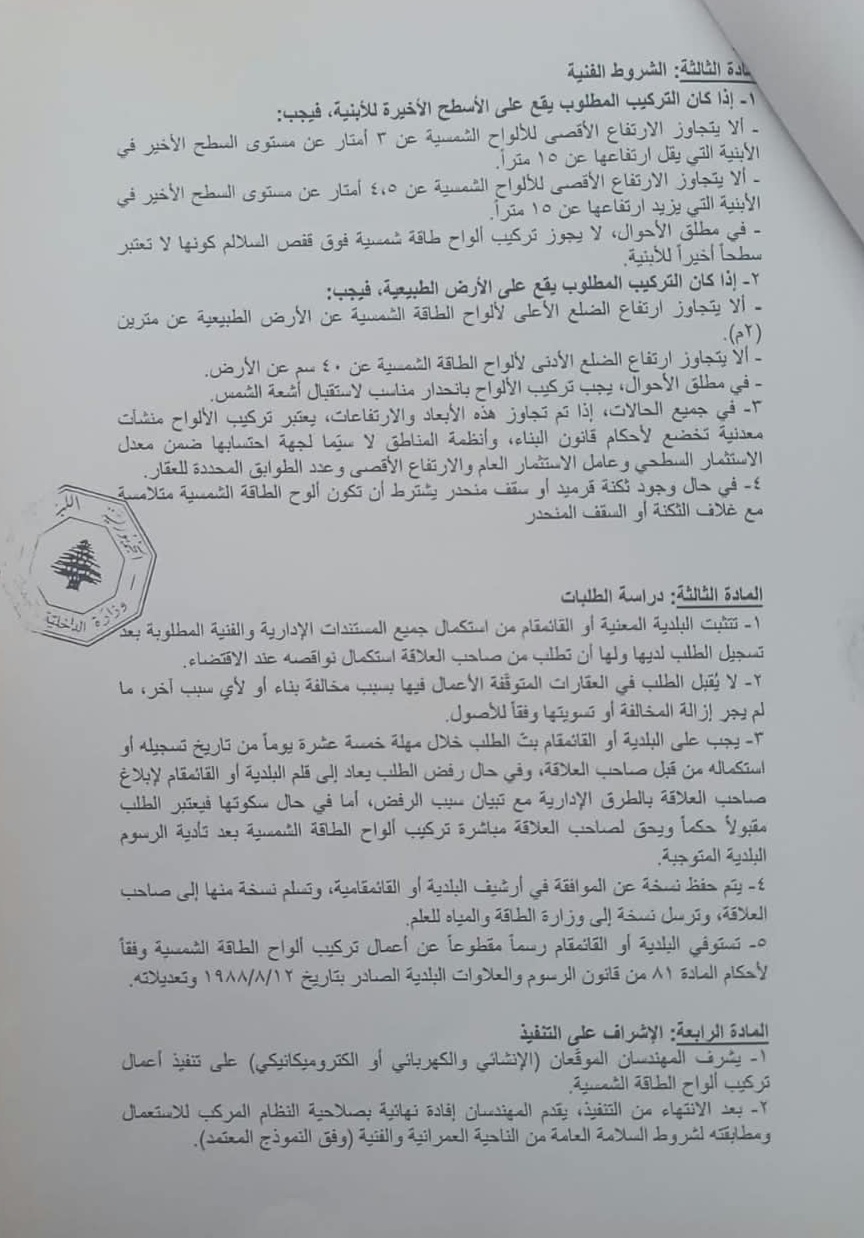 ـادة الثالثة: الشروط الفنية
١- إذا كان التركيب المطلوب يقع على الأسطح الأخيرة للأبنية، فيجب:
- ألا يتجاوز الارتفاع الأقصى للألواح الشمسية عن ٣ أمتار عن مستوى السطح الأخير في
الأبنية التي يقل ارتفاعها عن ١٥ متراً.
- ألا يتجاوز الارتفاع الأقصى للألواح الشمسية عن ٤،٥ أمتار عن مستوى السطح الأخير في
الأبنية التي يزيد ارتفاعها عن ١٥ متراً.
- في مطلق الأحوال، لا يجوز تركيب ألواح طاقة شمسية فوق قفص السلالم كونها لا تعتبر
سطحاً أخيراً للأبنية.
٢- إذا كان التركيب المطلوب يقع على الأرض الطبيعية، فيجب:
- ألا يتجاوز ارتفاع الضلع الأعلى لألواح الطاقة الشمسية عن الأرض الطبيعية عن مترين
(٢م).
- ألا يتجاوز ارتفاع الضلع الأدنى لألواح الطاقة الشمسية عن ٤٠ سم عن الأرض.
- في مطلق الأحوال، يجب تركيب الألواح بانحدار مناسب لاستقبال أشعة الشمس.
٣- في جميع الحالات، إذا تم تجاوز هذه الأبعاد والارتفاعات، يعتبر تركيب الألواح منشآت
معدنية تخضع لأحكام قانون البناء، وأنظمة المناطق لا سيّما لجهة احتسابها ضمن معدل
الاستثمار السطحي وعامل الاستثمار العام والارتفاع الأقصى وعدد الطوابق المحددة للعقار.
٤- في حال وجود ثكنة قرميد أو سقف منحدر يشترط أن تكون ألوح الطاقة الشمسية متلامسة
مع غلاف الثكنة أو السقف المنحدر
الجمهورية اللبـ
وزارة الداخلية
المادة الثالثة: دراسة الطلبات
١- تتثبت البلدية المعنية أو القائمقام من استكمال جميع المستندات الإدارية والفنية المطلوبة بعد
تسجيل الطلب لديها ولها أن تطلب من صاحب العلاقة استكمال نواقصه عند الاقتضاء.
٢- لا يُقبل الطلب في العقارات المتوقّفة الأعمال فيها بسبب مخالفة بناء أو لأي سبب آخر، ما
لم يجر إزالة المخالفة أو تسويتها وفقاً للأصول.
٣- يجب على البلدية أو القائمقام بتّ الطلب خلال مهلة خمسة عشرة يوماً من تاريخ تسجيله أو
استكماله من قبل صاحب العلاقة، وفي حال رفض الطلب يعاد إلى قلم البلدية أو القائمقام لإبلاغ
صاحب العلاقة بالطرق الإدارية مع تبيان سبب الرفض، أما في حال سكوتها فيعتبر الطلب
مقبولاً حكماً ويحق لصاحب العلاقة مباشرة تركيب ألواح الطاقة الشمسية بعد تأدية الرسوم
البلدية المتوجبة.
٤- يتم حفظ نسخة عن الموافقة في أرشيف البلدية أو القائمقامية، وتسلم نسخة منها إلى صاحب
العلاقة، وترسل نسخة إلى وزارة الطاقة والمياه للعلم.
٥- تستوفي البلدية أو القائمقام رسماً مقطوعاً عن أعمال تركيب ألواح الطاقة الشمسية وفقاً
لأحكام المادة ٨١ من قانون الرسوم والعلاوات البلدية الصادر بتاريخ ١٩٨٨/٨/١٢ وتعديلاته.
المادة الرابعة: الإشراف على التنفيذ
١- يشرف المهندسان الموقّعان (الإنشائي والكهربائي أو الكتروميكانيكي) على تنفيذ أعمال
تركيب ألواح الطاقة الشمسية.
٢- بعد الانتهاء من التنفيذ، يقدم المهندسان إفادة نهائية بصلاحية النظام المركب للاستعمال
ومطابقته لشروط السلامة العامة من الناحية العمرانية والفنية (وفق النموذج المعتمد).